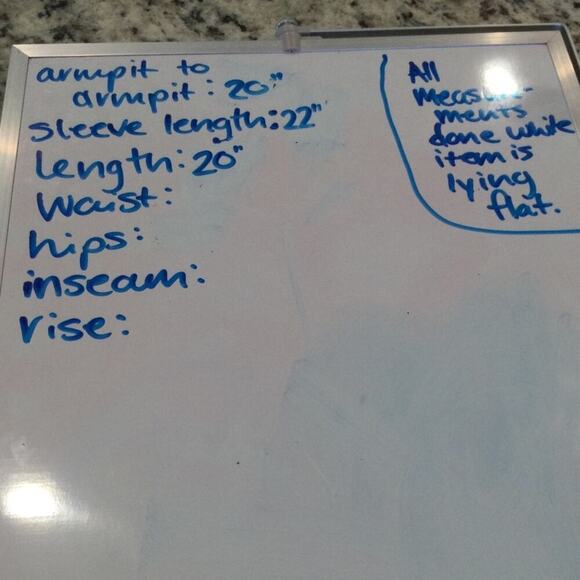 armpit to
armpit: 20"
sleeve length: 22"
Length: 20"
Waist:
hips:
inseam:
rise:
All
measure-
ments
done while
item is
lying
flat.